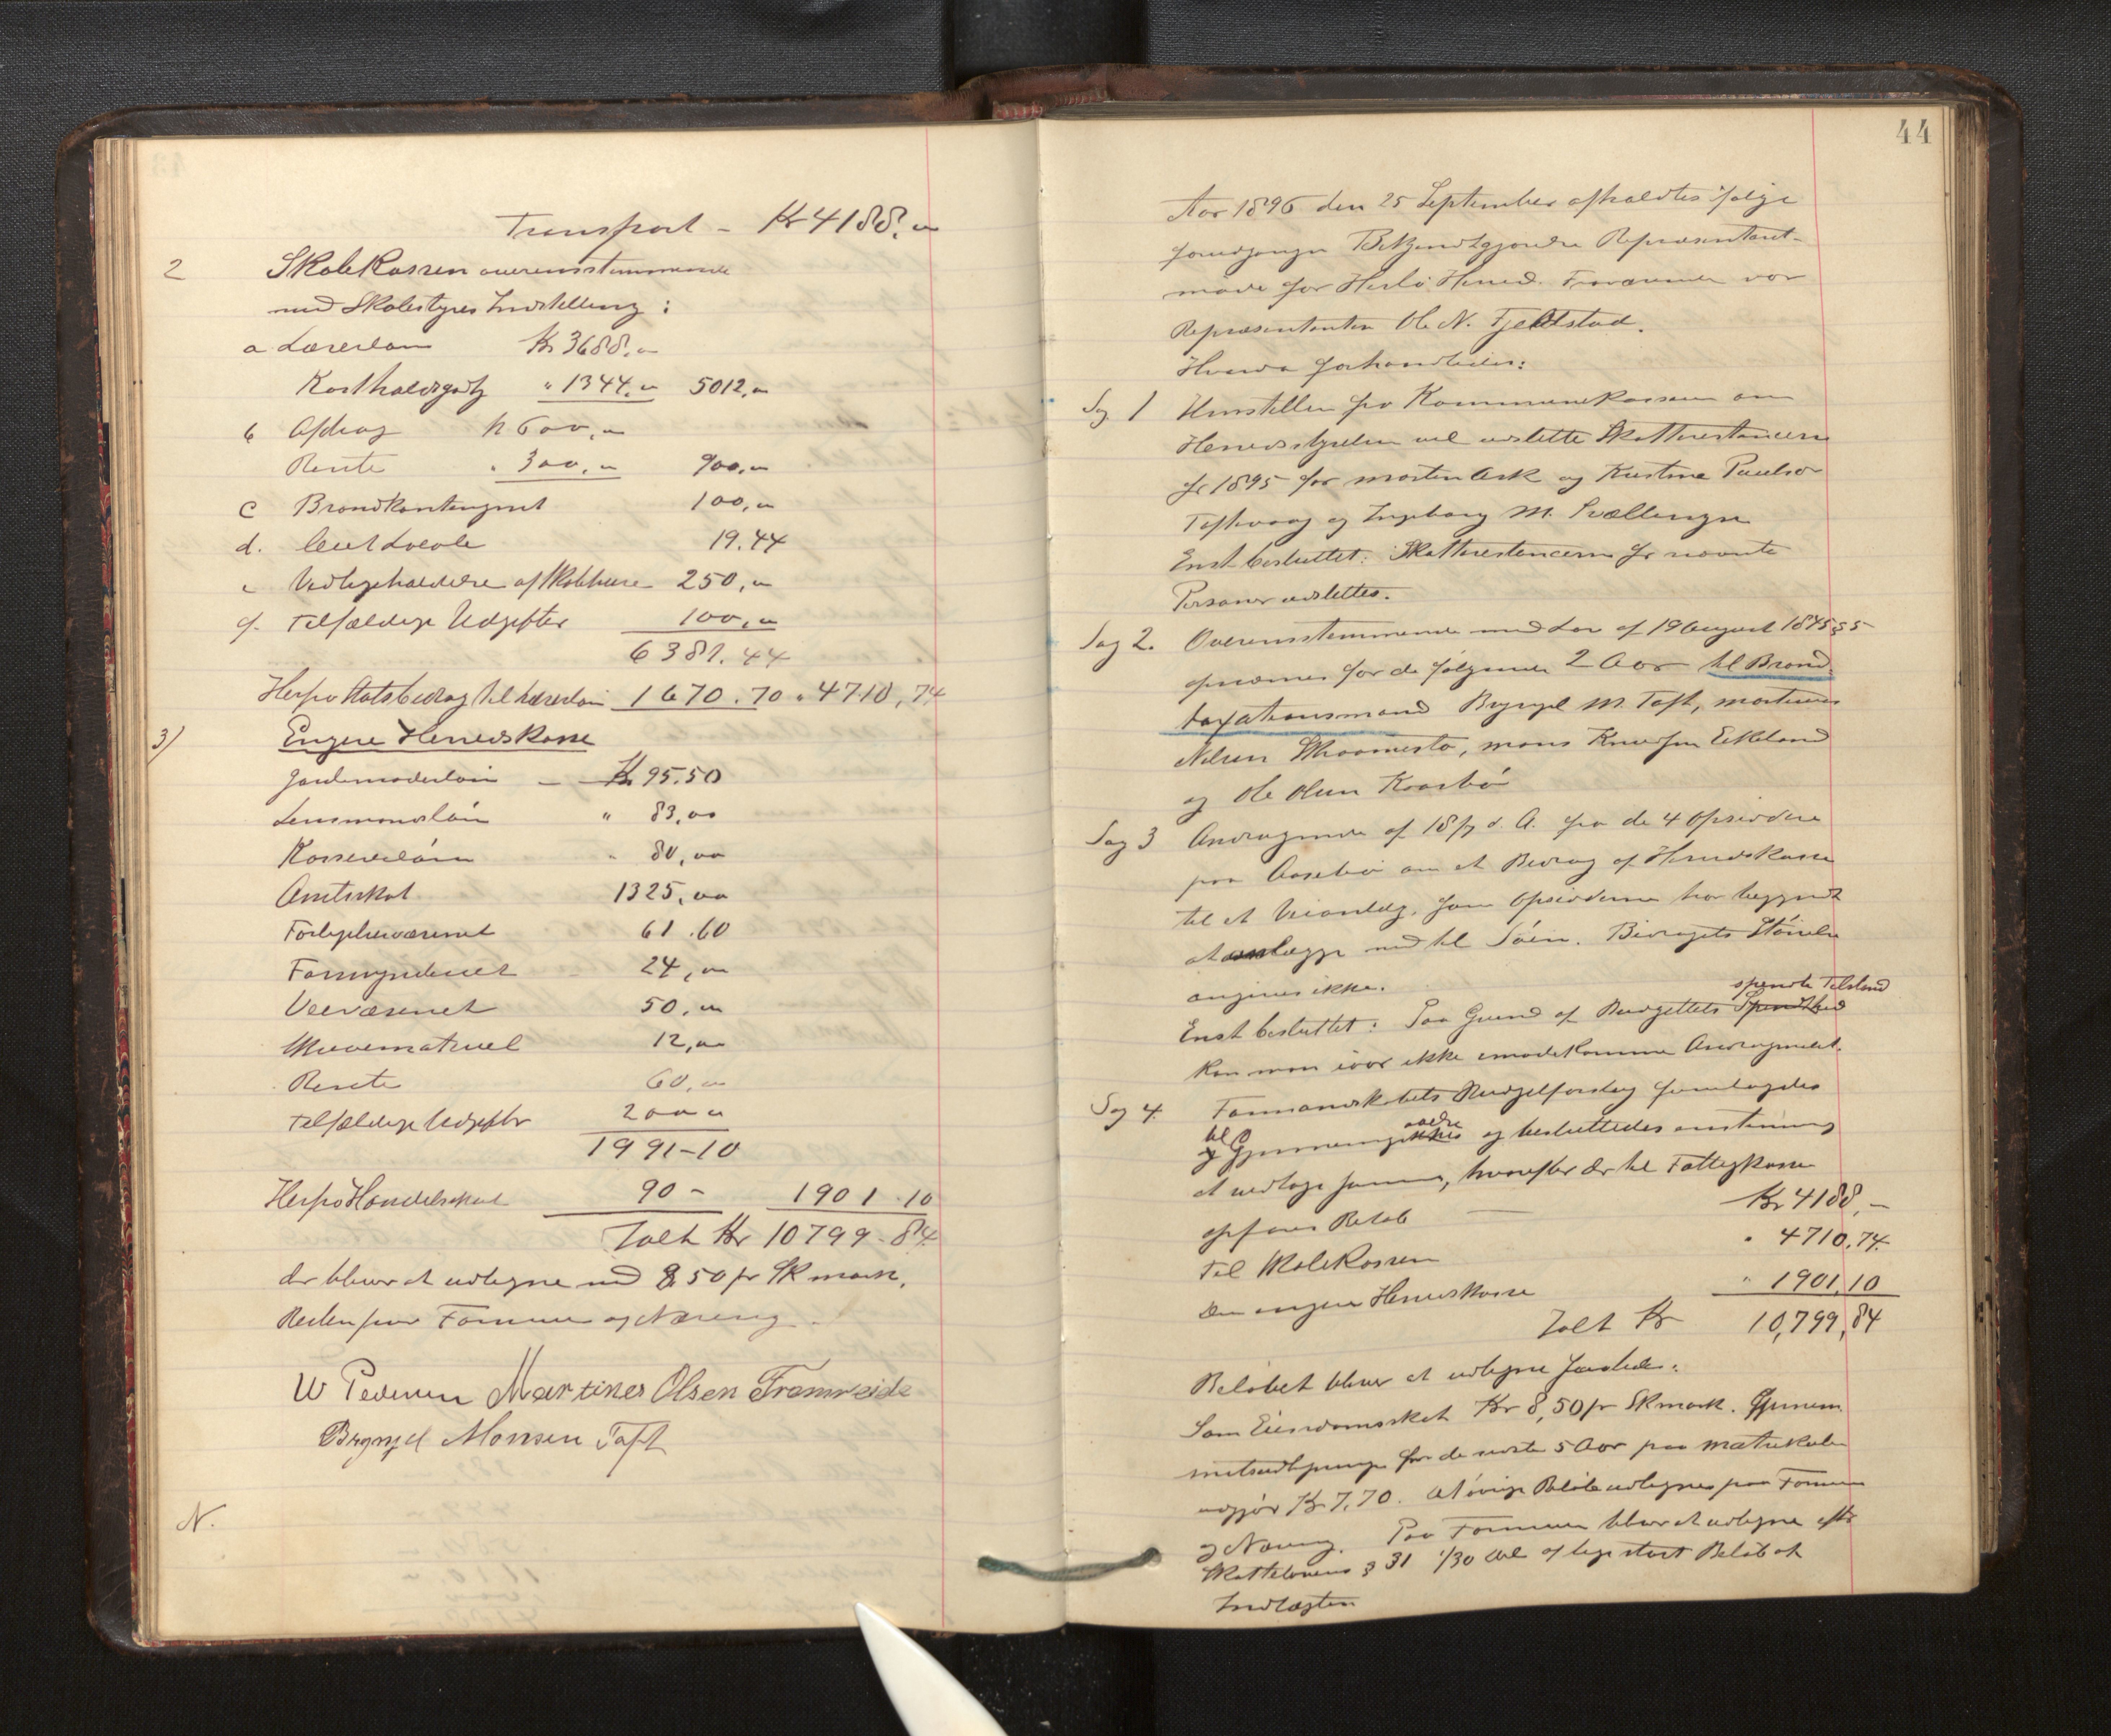 Transport - Kr 4188."
2 Skolekassen overensstemmende
med Skolestyres Indstilling :
a. Lærerløn Kr 3688."
Kostholdsgodtg " 1344." 5012,"
b Afdrag Kr 600,"
Rente " 300," 900,"
c Brandkontingent 100,"
d. Leiet Locale 19.44
e Vedligeholdelse af Skolehuse 250,"
f. Tilfældige Udgifter 100,"
6381.44
Herfra Statsbidrag til Lærerløn 1670.70 " 4710,74
3) Engere Herredskasse
Jordemoderløn - Kr 95.50
Lensmandsløn " 83,00
Kassererløn " 80,00
Amtsskat 1325,00
Forligelsesvæsenet 61.60
Formynderiet 24,"
Veivæsenet 50,"
Skrivematriel 12,"
Rente 60,"
Tilfældige Udgifter 200 "
1991-10
Herfra Handelsskat 90 - 1901.10
Ialt Kr 10799-84
der bliver at udligne med 8 50 pr Skmark,
Resten paa Formue og Næring.
W Pedersen Martines Olsen Fromreide
Brynjel Monsen Toft
N.
44
Aar 1896 den 25 September afholdtes ifølge
foregaaende Bekjendtgjørelse Repræsentant-
møde for Herlø Herred. Fraværende var
Repræsentanten Ole N. Fjeldstad.
Hvorda forhandledes:
Sag 1 Henstillen fra Kommunekassen om
Herredsstyrelsen vil udslette Skatterestancerne
for 1895 for Morten Ask og Kristine Paulsd
Toftevaag og Ingeborg M. Svellingen
Enst besluttet: Skatterestancerne for nævnte
Personer udslettes.
Sag 2. Overensstemmende med Lov af 19 August 1845 § 5
opnævnes for de følgende 2 Aar til Brand-
taxationsmænd Brynjel M. Toft, Martinus
Nilsen Skraamestø, Mons Knudsen Eikeland
og Ole Olsen Kaarbø
Sag 3 Andragende af 18/7 d. A. fra de 4 Opsiddere
paa Aasebø om et Bidrag af Herredskassen
til et Veianlæg, som Opsidderne har begyndt
at anlægge ned til Søen. Bidragets Størrelse
angives ikke.
spændte Tilstand
Enst besluttet: Paa Grund af Budgettets
kan man iaar ikke imødekomme Andragendet.
Sag 4. Formandskabets Budgetforslag fremlagdes
til Gjennemgaaelse og besluttedes enstemmig
at vedtage samme, hvorefter der til Fattigkassen
opføres Beløb Kr 4188,-
Til Skolekassen " 4710,74
Den engere Herredskasse " 1901,10
Ialt Kr 10,799,84
Beløbet bliver at udligne saaledes:
Som Eiendomsskat Kr 8,50 pr Skmark. Gjennem
snitsudligninge for de sidste 5 Aar paa Matrikulen
udgjør Kr 7,70. Det øvrige Beløb udlignes paa Formue
og Næring. Paa Formuen bliver at udligne efter
Skattelovens § 31 1/30 Del af lige stort Beløb af
Indtægten